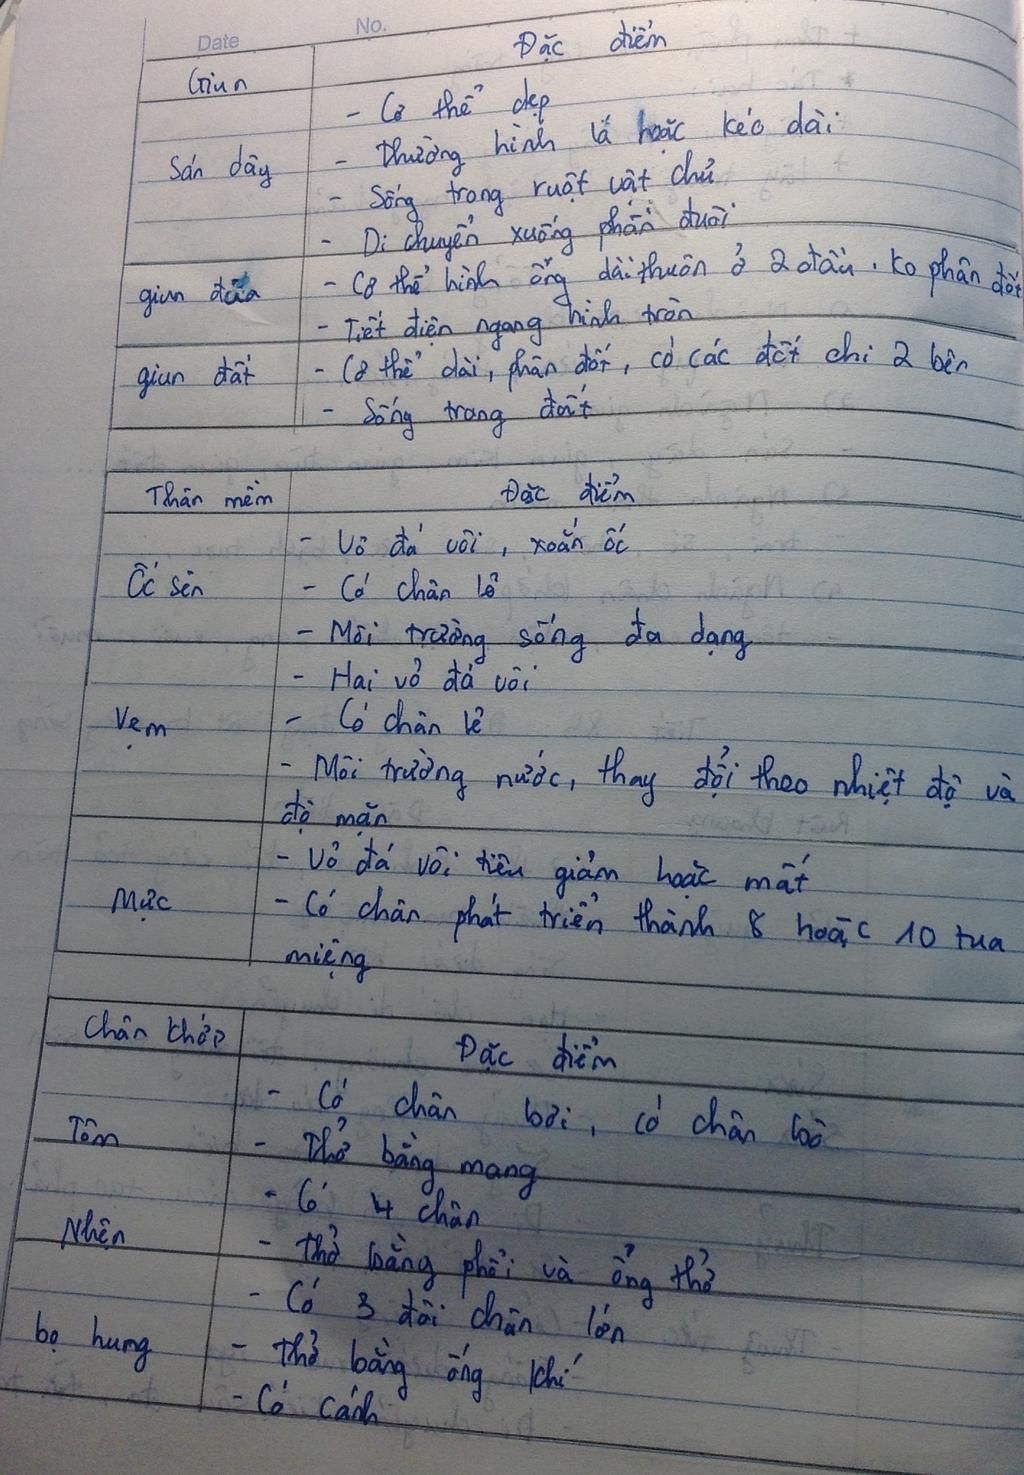 Date No.
Giun Đặc điểm
- Cơ thể dẹp
Sán dây - Thường hình lá hoặc kéo dài
- Sống trong ruột vật chủ
- Di chuyển xuống phần đuôi
giun đũa - Cơ thể hình ống dài thuôn ở 2 đầu. Ko phân đốt
- Tiết diện ngang hình tròn
giun đất - Cơ thể dài, phân đốt, có các đốt chi 2 bên
- Sống trong đất
Thân mềm Đặc điểm
- Vỏ đá vôi, xoắn ốc
Ốc sên - Có chân lẻ
- Môi trường sống đa dạng
- Hai vỏ đá vôi
Vẹm - Có chân lẻ
- Môi trường nước, thay đổi theo nhiệt độ và
độ mặn
- Vỏ đá vôi tiêu giảm hoặc mất
Mực - Có chân phát triển thành 8 hoặc 10 tua
miệng
Chân khớp Đặc điểm
- Có chân bơi, có chân bò
Tôm - Thở bằng mang
- Có 4 chân
Nhện - Thở bằng phổi và ống thở
- Có 3 đôi chân lớn
bọ hung - Thở bằng ống khí
- Có cánh